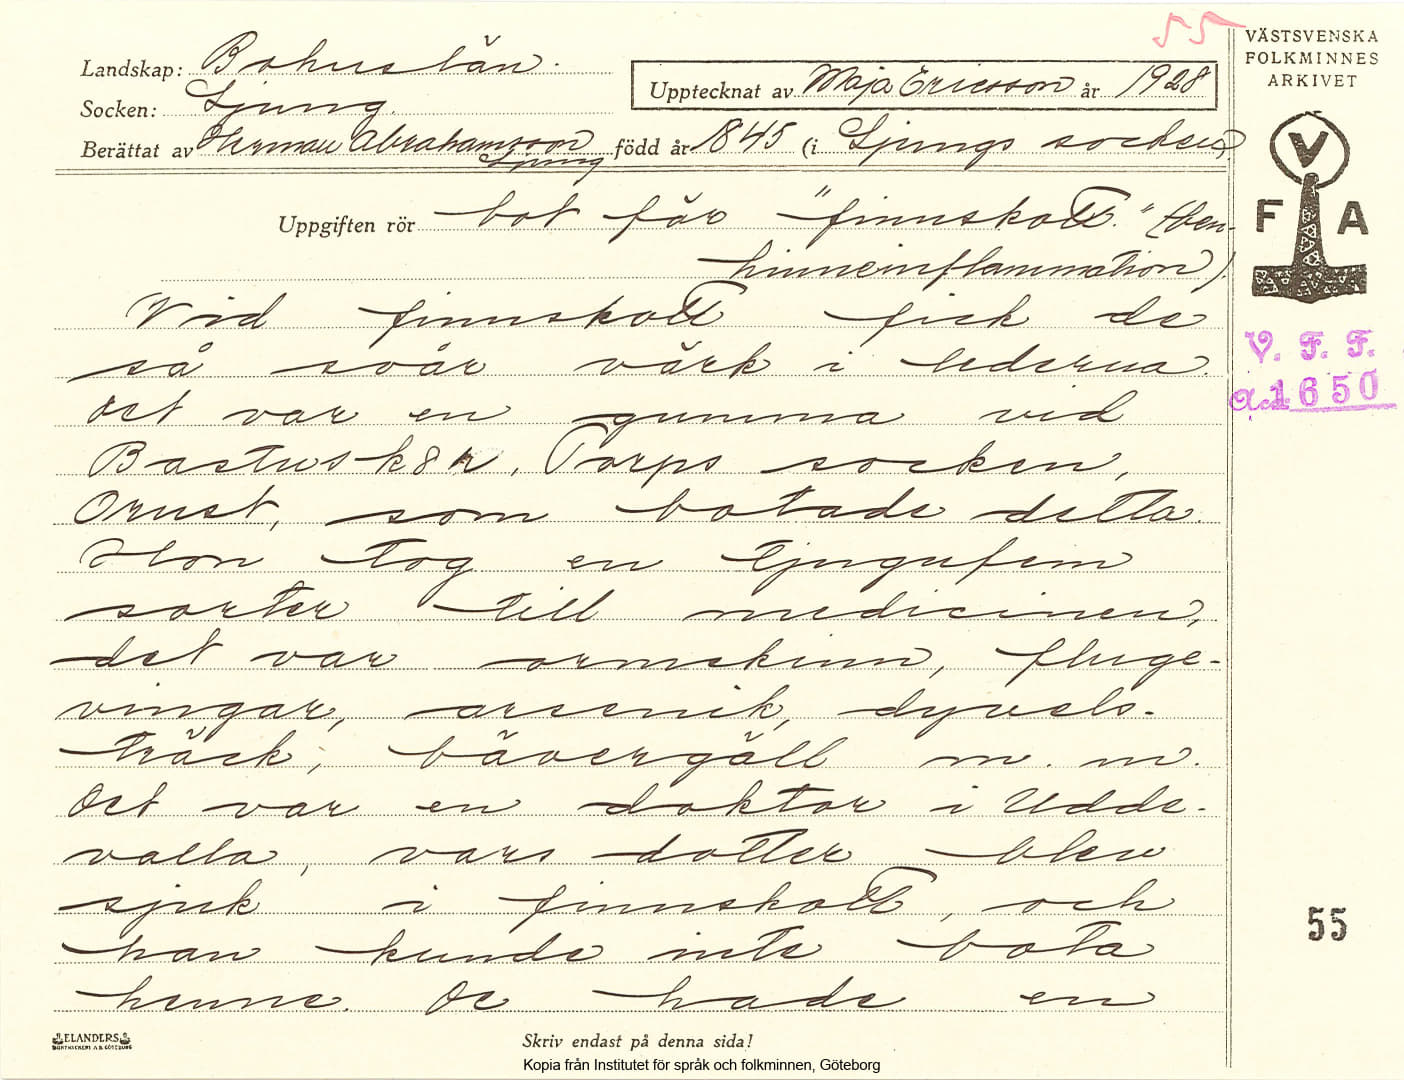 55
VÄSTSVENSKA
FOLKMINNES
ARKIVET
Landskap: Bohuslän.
Socken: Ljung.
Upptecknat av Maja Ericsson år 1928
Berättat av Herman Abrahamsson född år 1845 (i Ljungs socken)
Ljung
V
F A
Uppgiften rör bot får "finnskott." (ben-
hinneinflammation).
Vid finnskott fick de
så svår värk i lederna.
Det var en gumma vid
Torps socken,
Orust, som botade detta.
Hon tog en tjugufem
sorter till medicinen,
det var ormskinn, fluge-
vingar, arsenik, dyvels-
träck, bävergäll m. m.
Det var en doktor i Udde-
valla, vars dotter blev
sjuk i finnskott, och
han kunde inte bota
henne. De hade en
V. F. F.
1650
55
ELANDERS
Skriv endast på denna sida!
Kopia från Institutet för språk och folkminnen, Göteborg